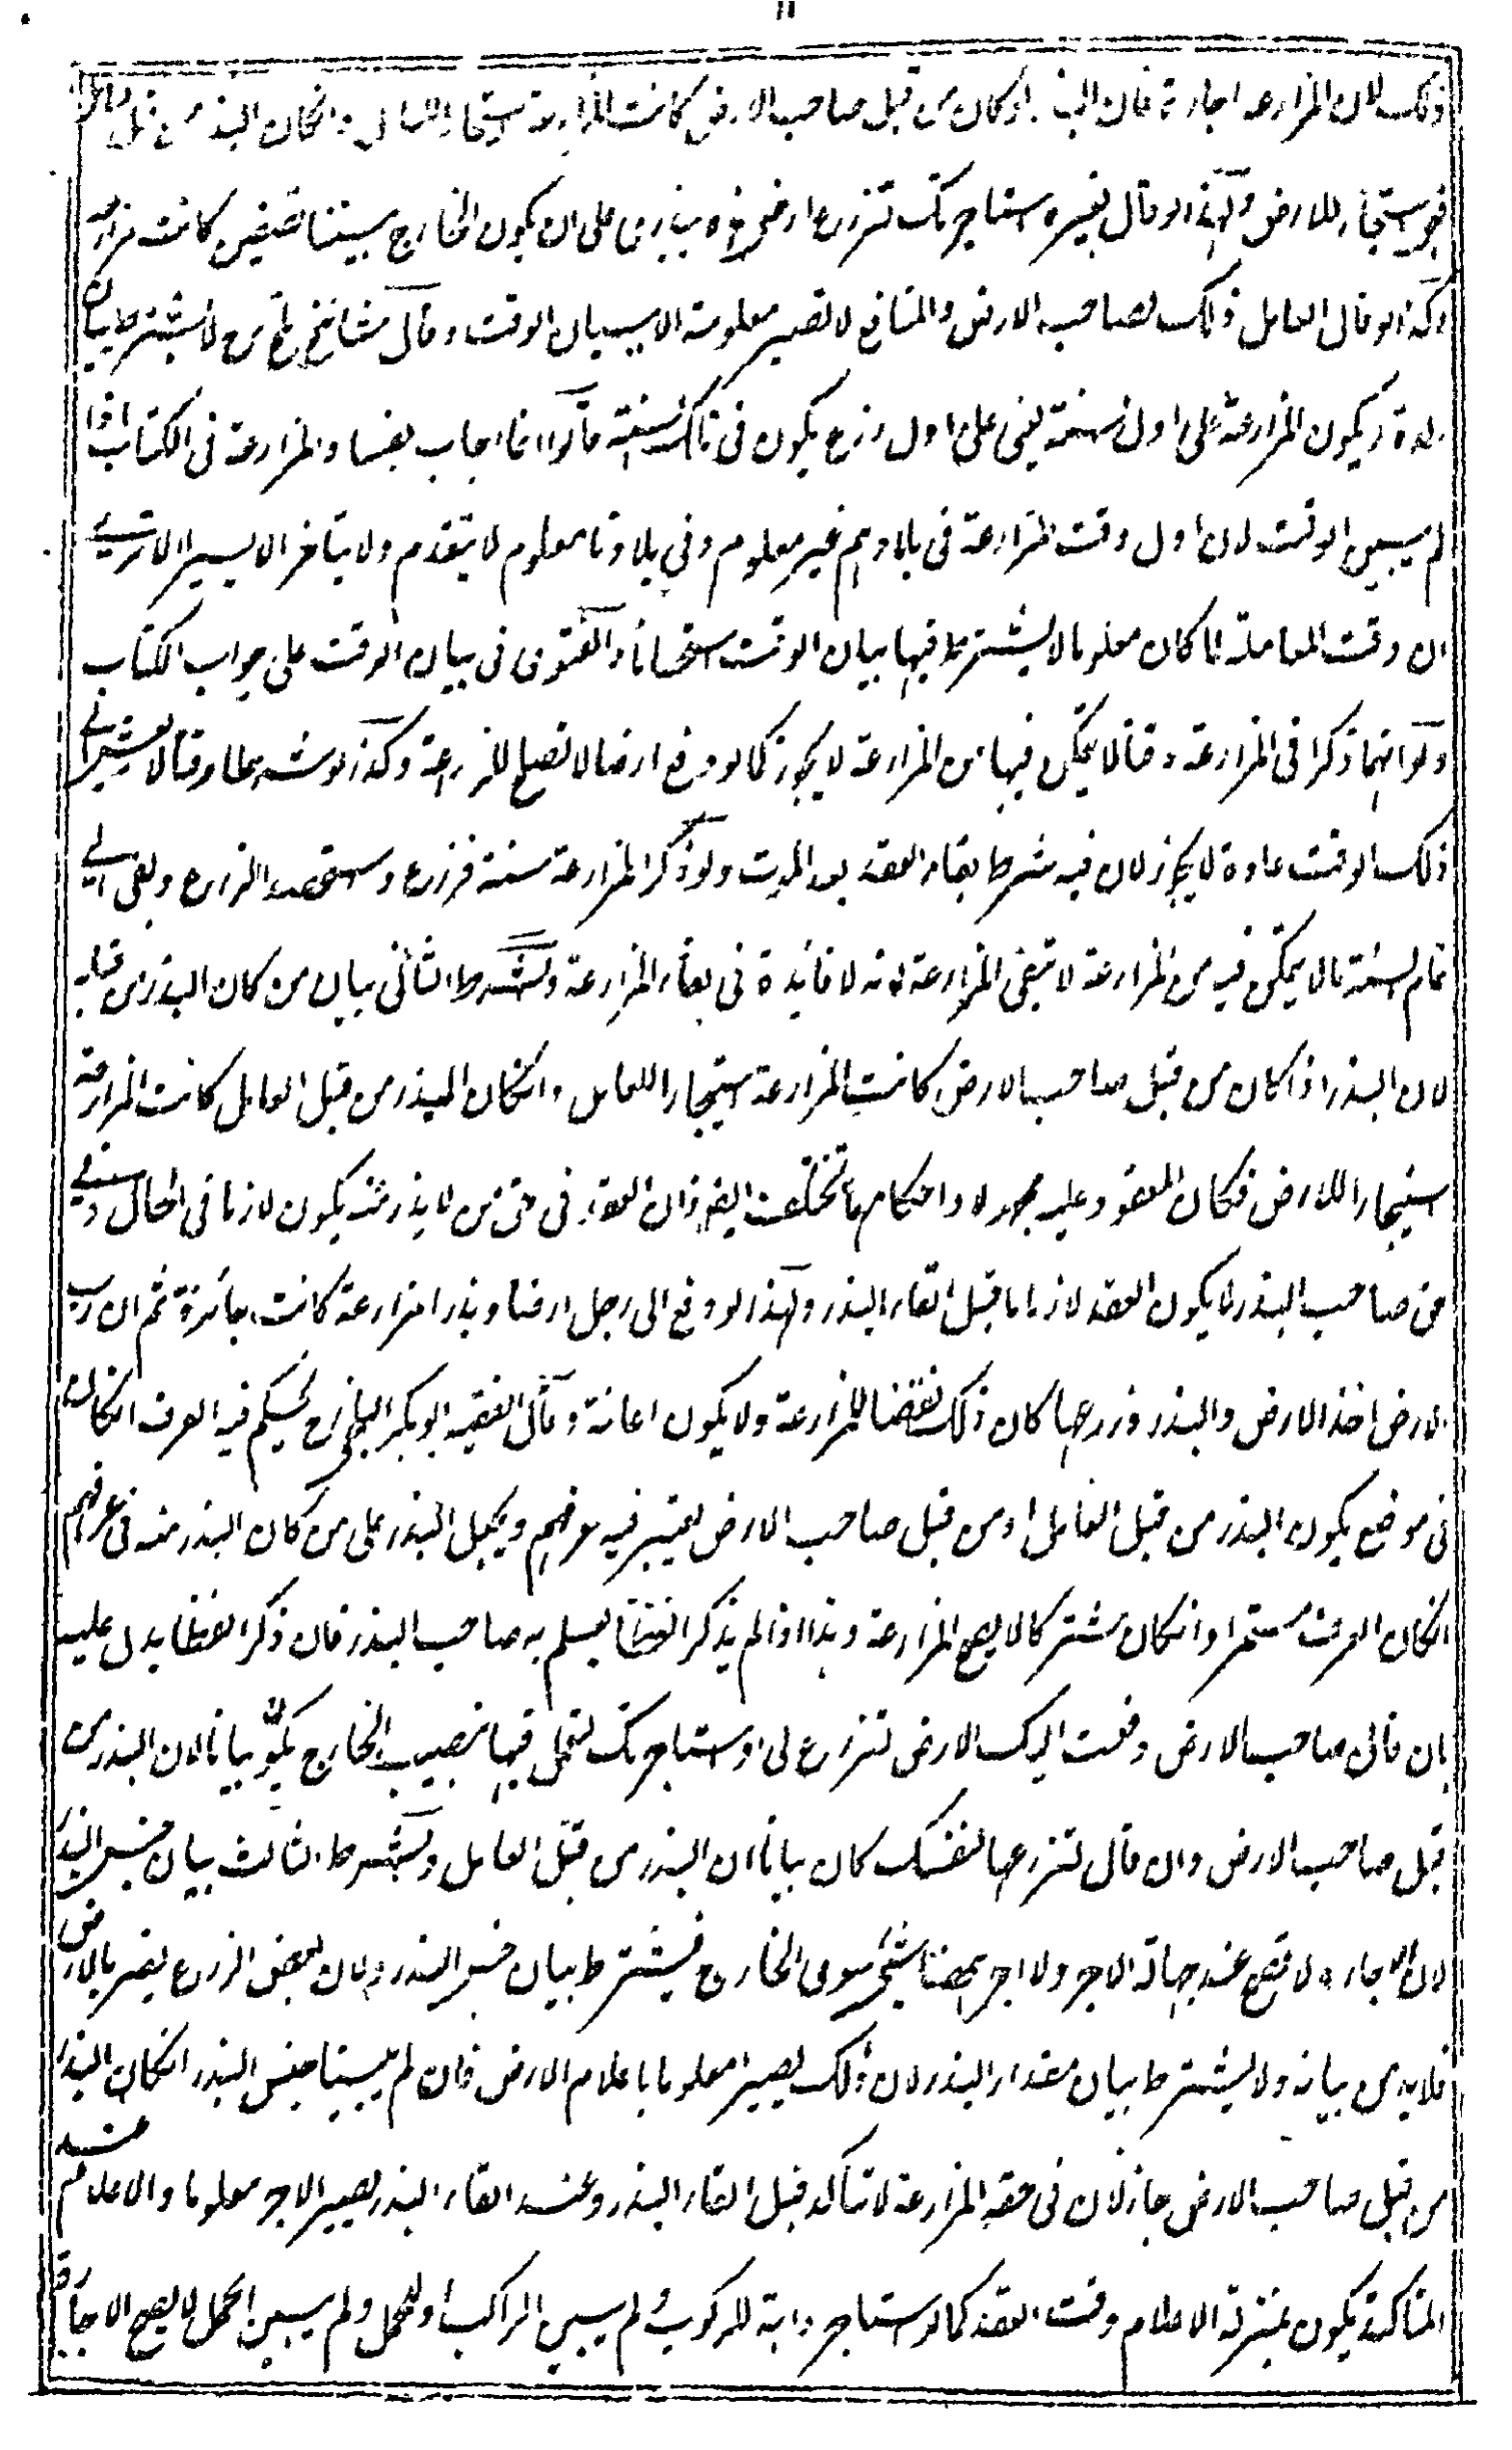 ١١
ذلك لان المزارعة اجارة فان البذر لو كان من قبل صاحب الارض كانت المزارعة استيجارا للعامل وانكان البذر من قبل العامل
فهى استيجار للارض ولهذا لو قال لغيره استاجرتك لتزرع ارضى هذه ببذرى على ان يكون الخارج بيننا نصفين كانت مزارعة
وكذا لو قال العامل ذلك لصاحب الارض والمنافع لا تصير معلومة الا ببيان الوقت وقال مشائخ بلخ رح لا يشترط بيان
المدة ويكون المزارعة على اول السنة يعنى على اول زرع يكون فى تلك السنة قالوا انما اجاب بفساد المزارعة فى الكتاب اذا
لم يبين الوقت لان اول وقت المزارعة فى بلادهم غير معلوم وفى بلادنا معلوم لا يتقدم ولا يتاخر الا يسيرا الا ترى
ان وقت المعاملة لما كان معلوما لا يشترط فيها بيان الوقت استحسانا والفتوى فى بيان الوقت على جواب الكتاب
ولو انهما ذكرا فى المزارعة وقتا لا يتمكن فيها من المزارعة لا يجوز كما لو دفع ارضا لا تصلح للزراعة وكذا لو شرطا وقتا لا يعيش الى
ذلك الوقت عادة لا يجوز لان فيه شرط بقاء العقد بعد الموت ولو ذكر المزارعة سنة فزرع واستحصد الزرع وبقى الى
تمام السنة ما لا يتمكن فيه من المزارعة لا تبقى المزارعة لانه لا فائدة فى بقاء المزارعة والشرط الثانى بيان من كان البذر من قبله
لان البذر اذا كان من قبل صاحب الارض كانت المزارعة استيجارا للعامل وانكان البذر من قبل العامل كانت المزارعة
استيجارا للارض فكان المعقود عليه مجهولا واحكامها تختلف ايضا فان العقد فى حق من لا بذر منه يكون لازما فى الحال وفى
حق صاحب البذر لا يكون العقد لازما قبل القاء البذر ولهذا لو دفع الى رجل ارضا وبذرا مزارعة كانت جائزة ثم ان رب
الارض اخذ الارض والبذر وزرعها كان ذلك نقضا للمزارعة ولا يكون اعانة وقال الفقيه ابو بكر البلخى رح يحكم فيه العرف انكان
فى موضع يكون البذر من قبل العامل او من قبل صاحب الارض يعتبر فيه عرفهم ويجعل البذر على من كان البذر منه فى عرفهم
انكان العرف مستمرا وانكان مشتركا لا يصح المزارعة وهذا اذا لم يذكر لفظا يعلم به صاحب البذر فان ذكر لفظا يدل عليه
بان قال صاحب الارض دفعت اليك الارض لتزرع لى او استاجرتك لتعمل فيها بنصيب الخارج يكون بيانا لان البذر من
قبل صاحب الارض وان قال لتزرعها لنفسك كان بيانا ان البذر من قبل العامل والشرط الثالث بيان جنس البذر
لان الاجارة لا تصح عند جهالة الاجر ولا اجر ههنا شئ سوى الخارج فيشترط بيان جنس البذر ولان بعض الزرع يضر بالارض
فلا بد من بيانه ولا يشترط بيان مقدار البذر لان ذلك يصير معلوما باعلام الارض فان لم يبينا جنس البذر انكان البذر
من قبل صاحب الارض جاز لان فى حقه المزارعة لا تتاكد قبل القاء البذر وعند القاء البذر يصير الاجر معلوما والاعلام عند
التاكد يكون بمنزلة الاعلام وقت العقد كما لو استاجر دابة للركوب ولم يبين الراكب او للحمل ولم يبين الحمل لا يصح الاجارة